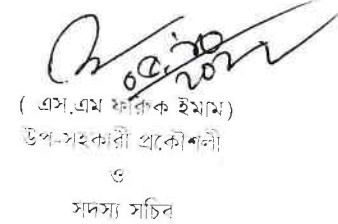 ০৫.১০
২০২২
( এস.এম ফারুক ইমাম)
উপ-সহকারী প্রকৌশলী
ও
সদস্য সচিব